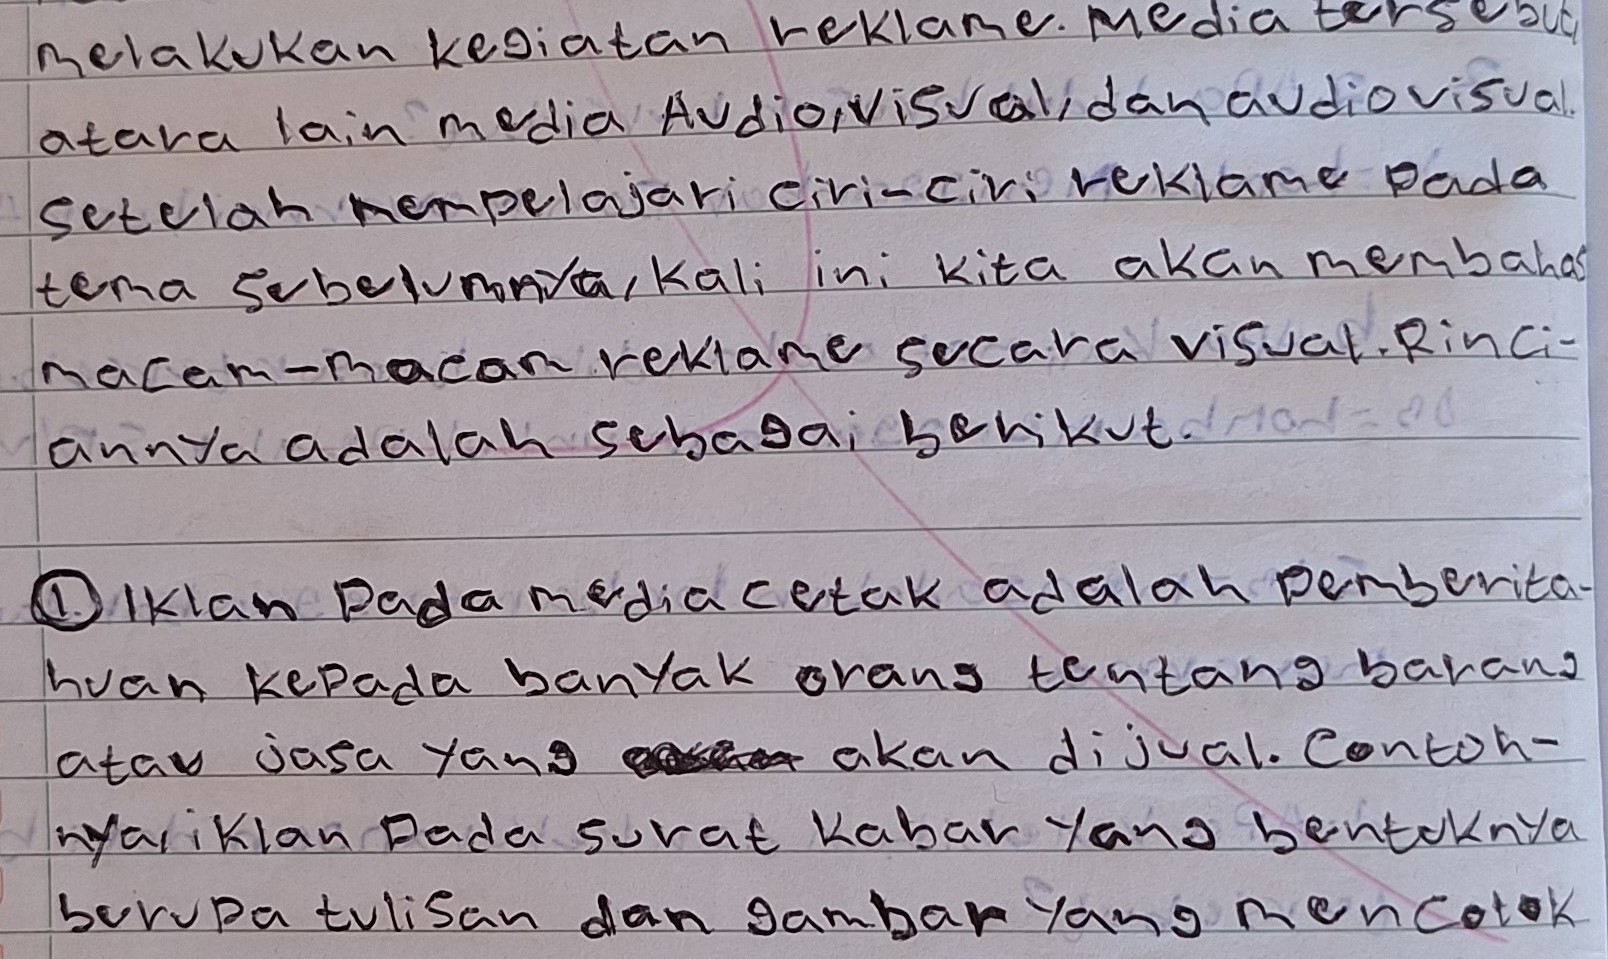 melakukan kegiatan reklame. Media tersebut
atara lain media Audio, visual, dan audiovisual.
setelah mempelajari ciri-ciri reklame pada
tema sebelumnya, kali ini kita akan membahas
macam-macam reklame secara visual. Rinci-
annya adalah sebagai berikut.
1. Iklan pada media cetak adalah pemberita-
huan kepada banyak orang tentang barang
atau jasa yang akan dijual. Contoh-
nya, iklan pada surat kabar yang bentuknya
berupa tulisan dan gambar yang mencolok